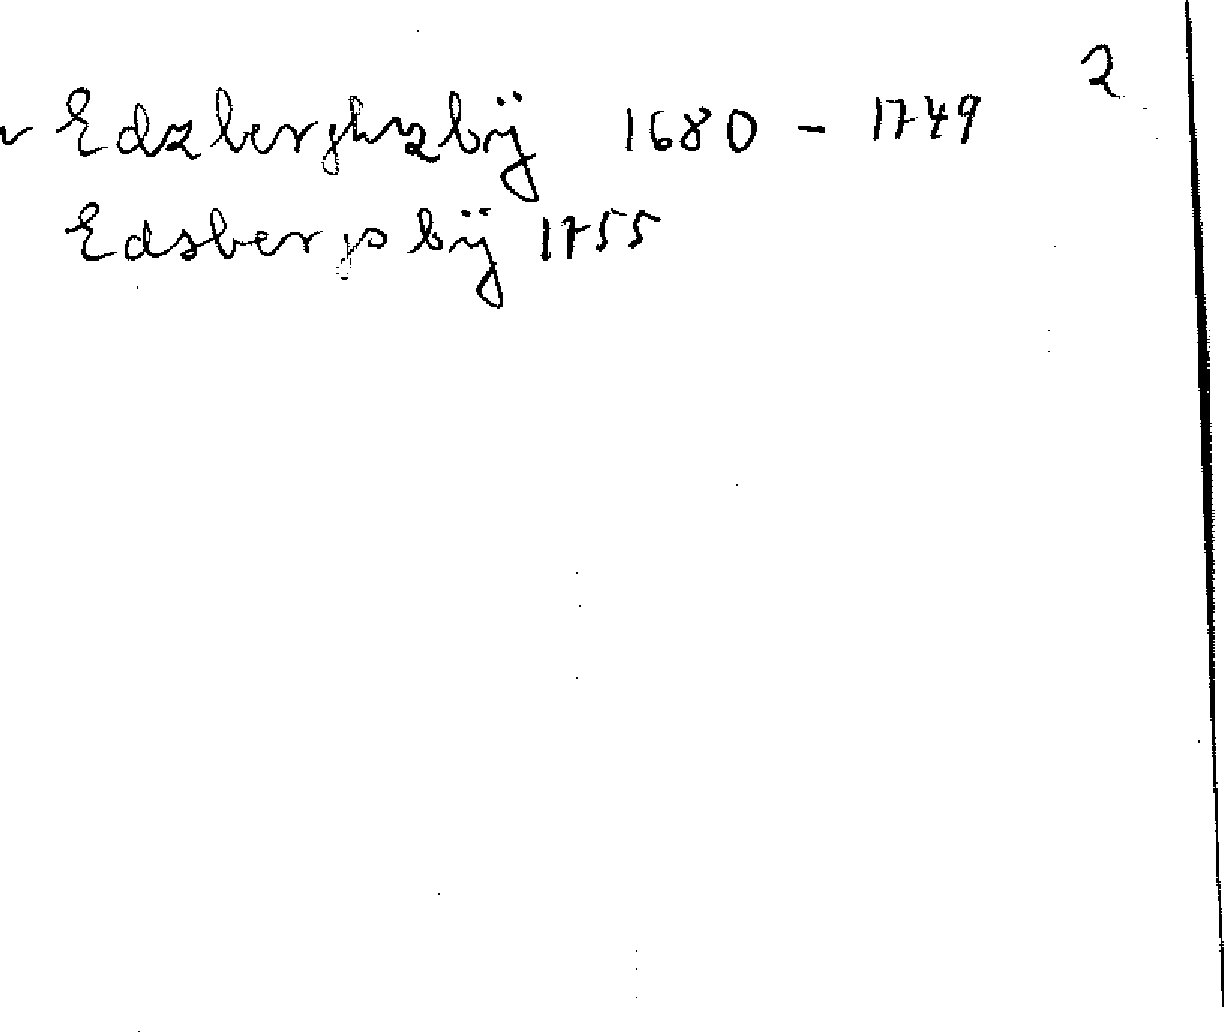 2
Edzberghzbÿ 1680 - 1749
Edsbergsbÿ 1755